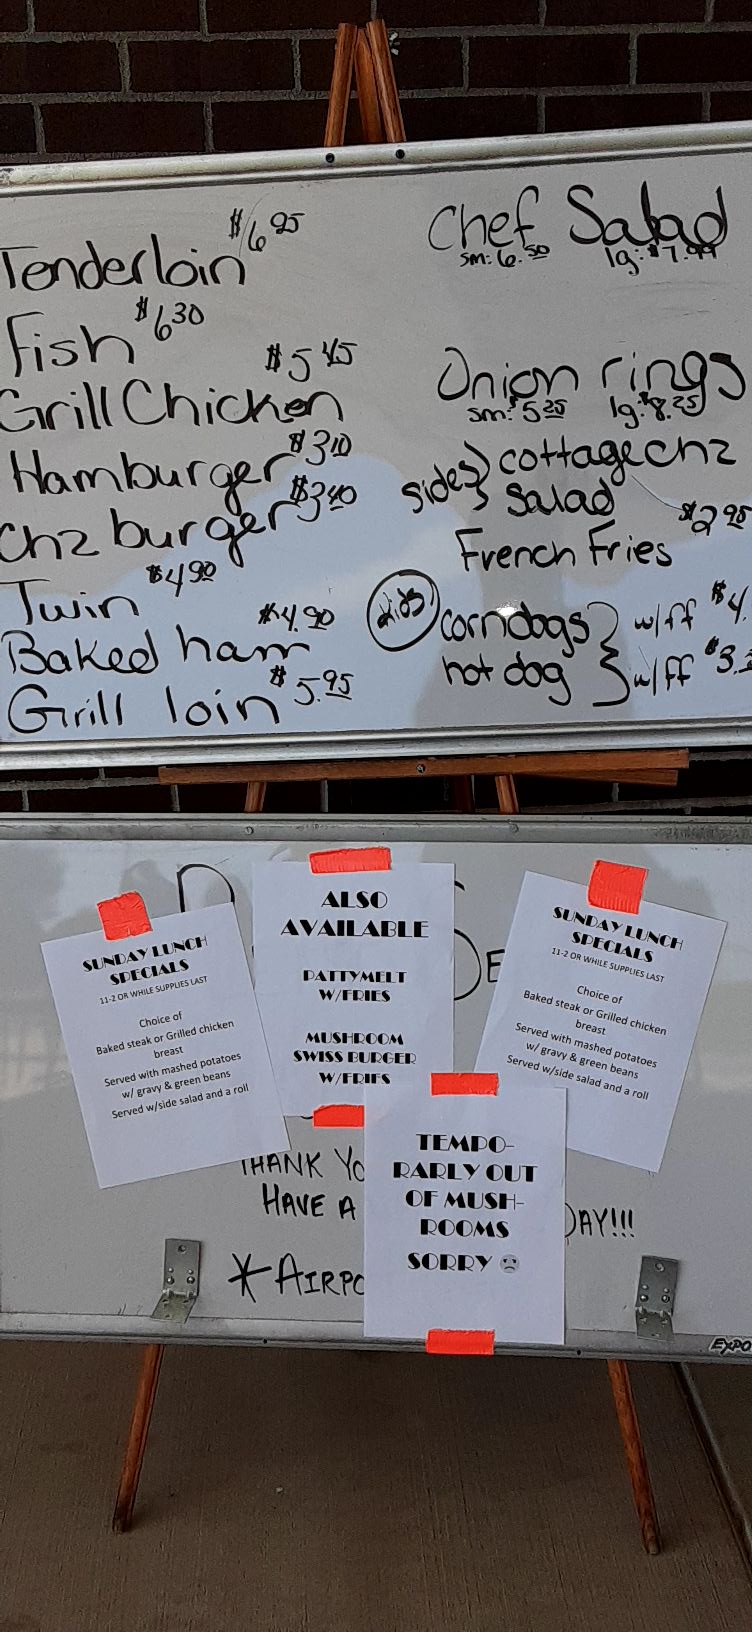 $6.95
Tenderloin
$6.30
Fish
$5.45
Grill Chicken
$3.10
Hamburger
$3.40
Chz burger
$4.90
Twin
$4.90
Baked ham
$5.95
Grill loin
Chef Salad
sm: 6.50 lg: $7.99
Onion rings
sm: $5.25 lg: $8.25
sides cottage chz
salad
$2.95
French Fries
kids corndogs w/ff $4.
hot dog w/ff $3.
SUNDAY LUNCH
SPECIALS
11-2 OR WHILE SUPPLIES LAST
Choice of
Baked steak or Grilled chicken
breast
Served with mashed potatoes
w/ gravy & green beans
Served w/side salad and a roll
ALSO
AVAILABLE
PATTYMELT
W/FRIES
MUSHROOM
SWISS BURGER
W/FRIES
SUNDAY LUNCH
SPECIALS
11-2 OR WHILE SUPPLIES LAST
Choice of
Baked steak or Grilled chicken
breast
Served with mashed potatoes
w/ gravy & green beans
Served w/side salad and a roll
TEMPO-
RARLY OUT
OF MUSH-
ROOMS
SORRY ☹
THANK YO
HAVE A DAY!!!
*AIRPO
EXPO